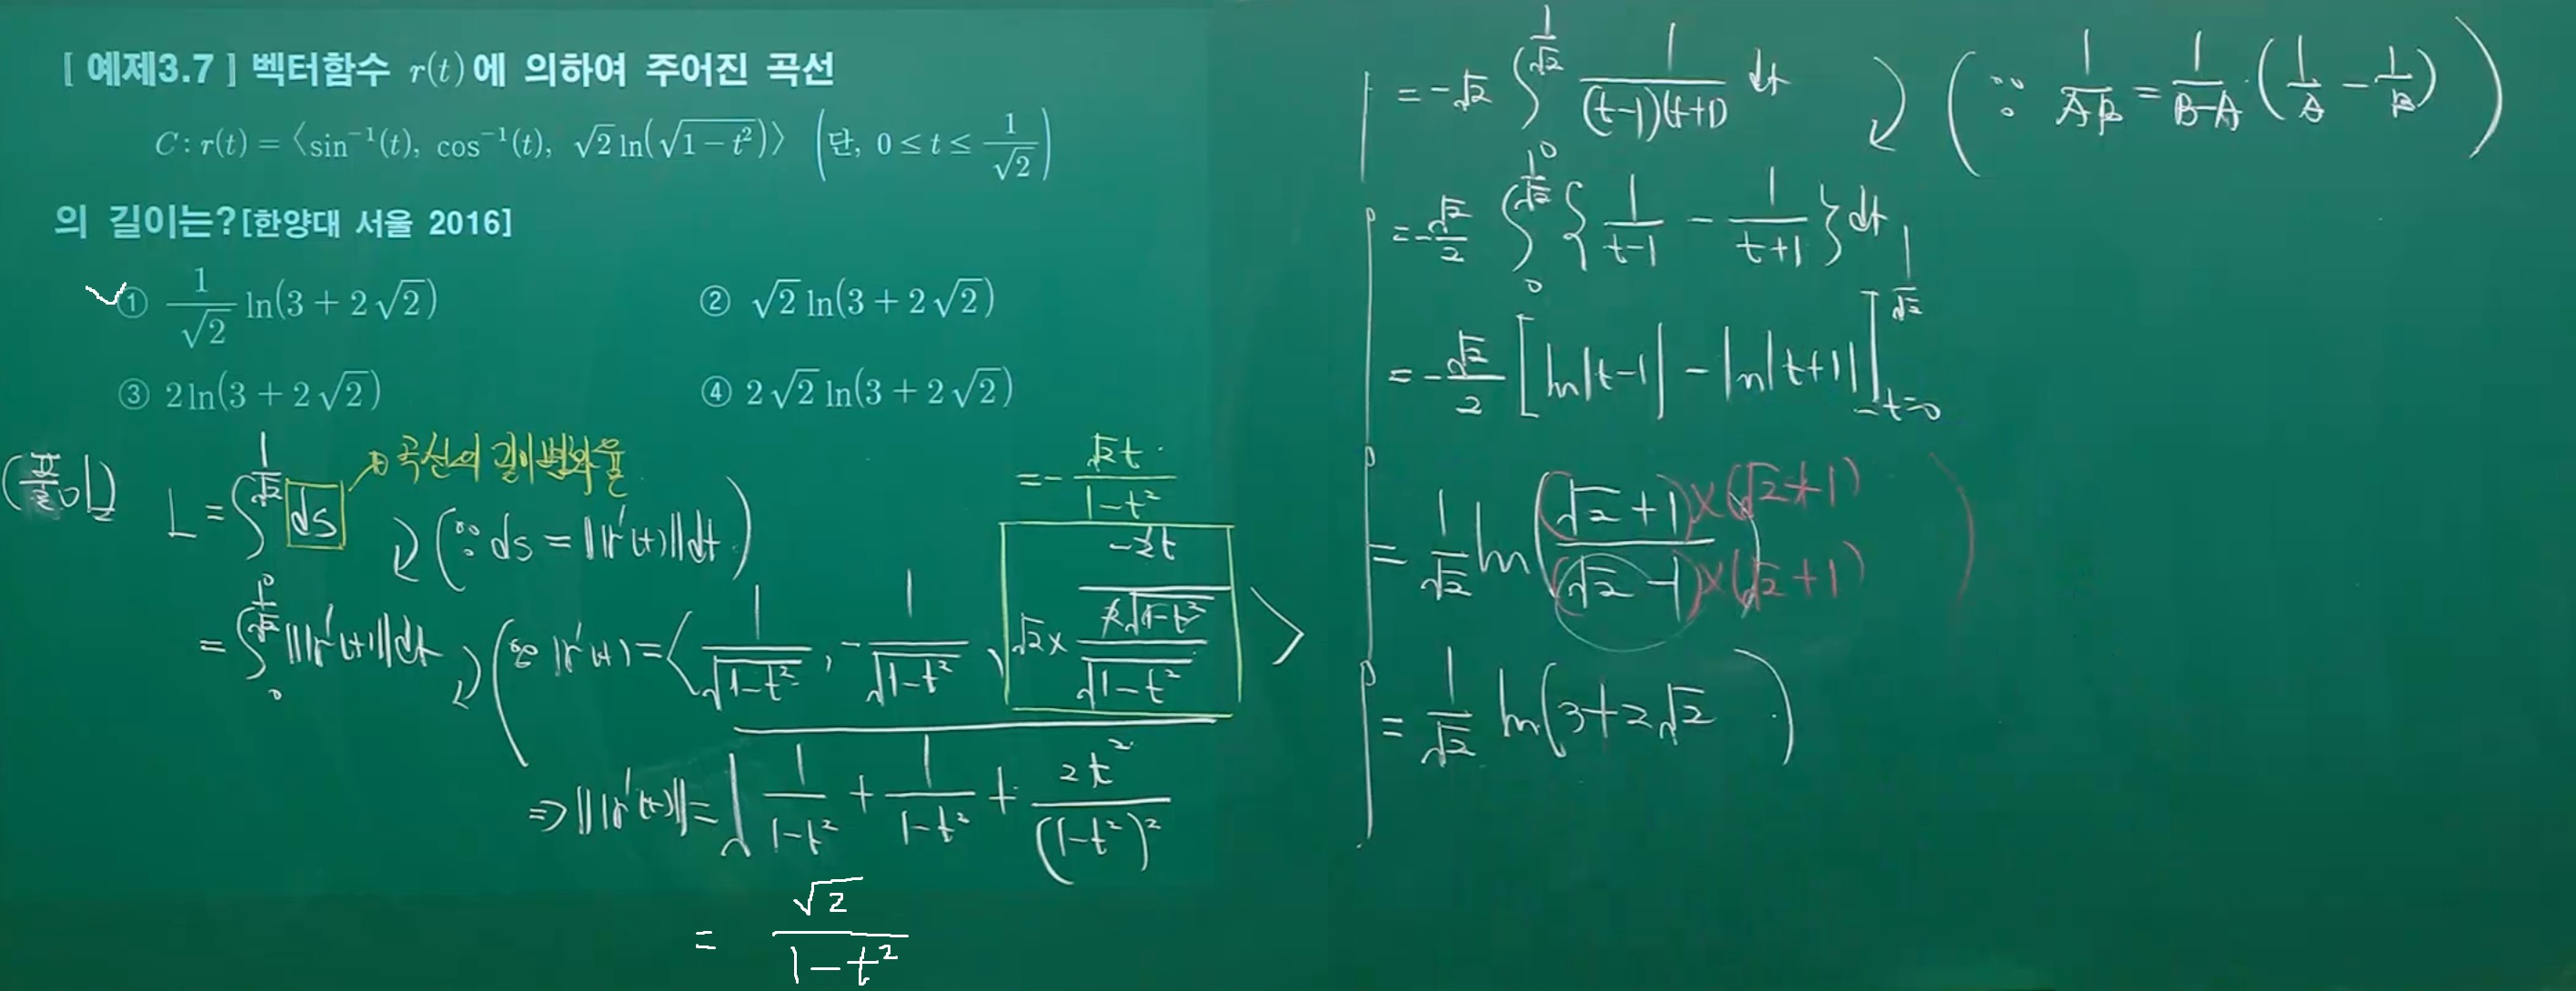 [ 예제3.7 ] 벡터함수 r(t)에 의하여 주어진 곡선
C : r(t) = ⟨sin⁻¹(t), cos⁻¹(t), √2 ln(√(1−t²))⟩ (단, 0 ≤ t ≤ 1/√2)
의 길이는? [한양대 서울 2016]
① 1/√2 ln(3+2√2)
② √2 ln(3+2√2)
③ 2ln(3+2√2)
④ 2√2 ln(3+2√2)
(풀이) L = ∫₀^(1/√2) ds → 곡선의 길이변화율
(∵ ds = ‖r'(t)‖dt)
= ∫₀^(1/√2) ‖r'(t)‖dt
(∵ r'(t) = ⟨1/√(1−t²), −1/√(1−t²), √2 × (−2t/(2√(1−t²)))/√(1−t²)⟩
= −√2t/(1−t²)
⇒ ‖r'(t)‖ = √(1/(1−t²) + 1/(1−t²) + 2t²/(1−t²)²)
= √2/(1−t²)
= −√2 ∫₀^(1/√2) 1/((t−1)(t+1)) dt (∵ 1/AB = 1/(B−A) · (1/A − 1/B))
= −√2/2 ∫₀^(1/√2) {1/(t−1) − 1/(t+1)} dt
= −√2/2 [ln|t−1| − ln|t+1|]_(t=0)^(1/√2)
= 1/√2 ln((√2+1)×(√2+1)/(√2−1)×(√2+1))
= 1/√2 ln(3+2√2)